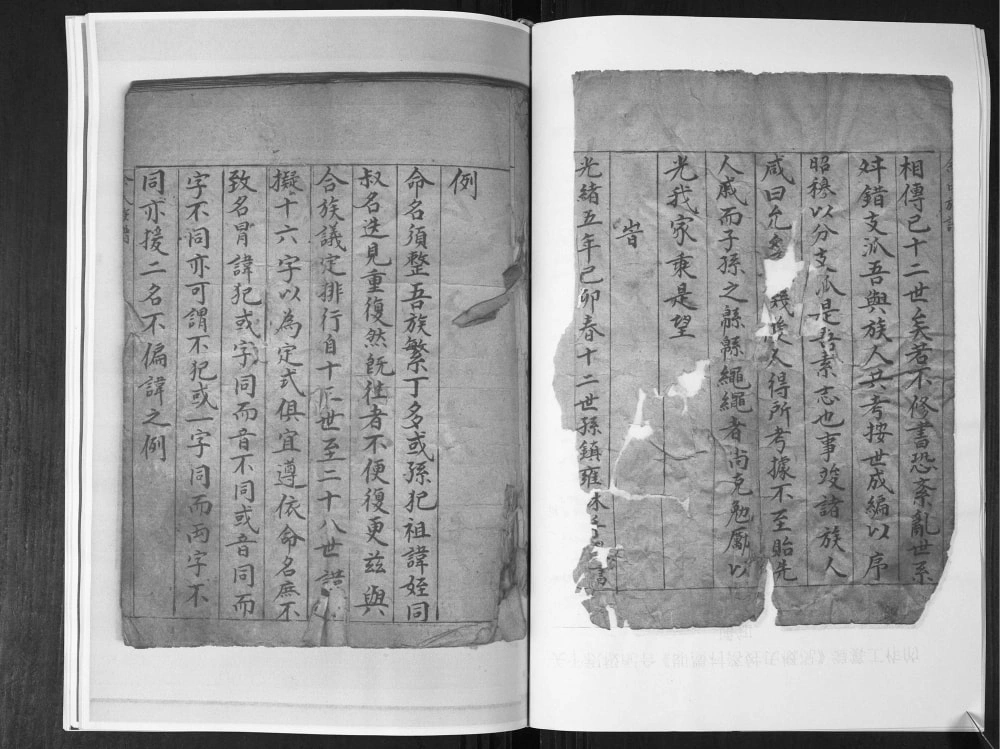 相傳已十二世矣若不修書恐紊亂世系
舛錯支派吾與族人共考按世成編以序
昭穆以分支派是吾素志也事竣諸族人
咸曰允矣後人得所考據不至貽先
人戚而子孫之緜緜繩繩者尚克勉勵以
光我家乘是望
旹
光緒五年己卯春十二世孫鎮雍沐手
例
命名須整吾族繁丁多或孫犯祖諱姪同
叔名迭見重復然既往者不便復更茲與
合族議定排行自十三世至二十八世
擬十六字以為定式俱宜遵依命名庶不
致名冒諱犯或字同而音不同或音同而
字不同亦可謂不犯或一字同而兩字不
同亦援二名不偏諱之例